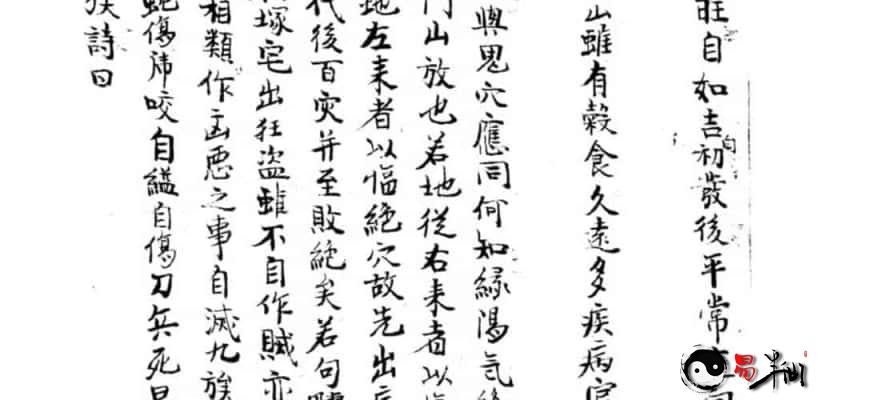 旺自如吉初發後平常
自
山雖有穀食久遠多疾病官
與鬼穴應同何知緣陽气
門山放也若地從右来者以
地左来者以福絶穴故先出
代後百灾并至敗絶矣若句
塚宅出狂盗雖不自作賊亦
相類作凶恶之事自滅九族
蛇傷虎咬自縊自傷刀兵死
詩曰
易半仙